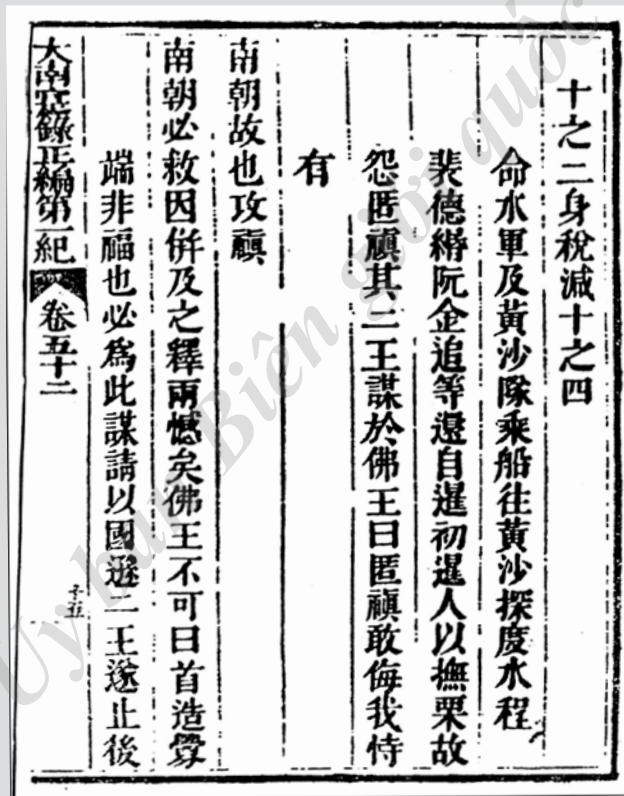 十之二身稅減十之四
命水軍及黃沙隊乘船往黃沙探度水程
裴德縉阮金追等還自暹初暹人以撫栗故
怨匿禛其二王謀於佛王曰匿禛敢侮我恃
有
南朝故也攻禛
南朝必救因併及之釋兩憾矣佛王不可曰首造釁
端非福也必爲此謀請以國遜二王遂止後
大南寔錄正編第一紀 卷五十二
Uỷ ban Biên giới quốc